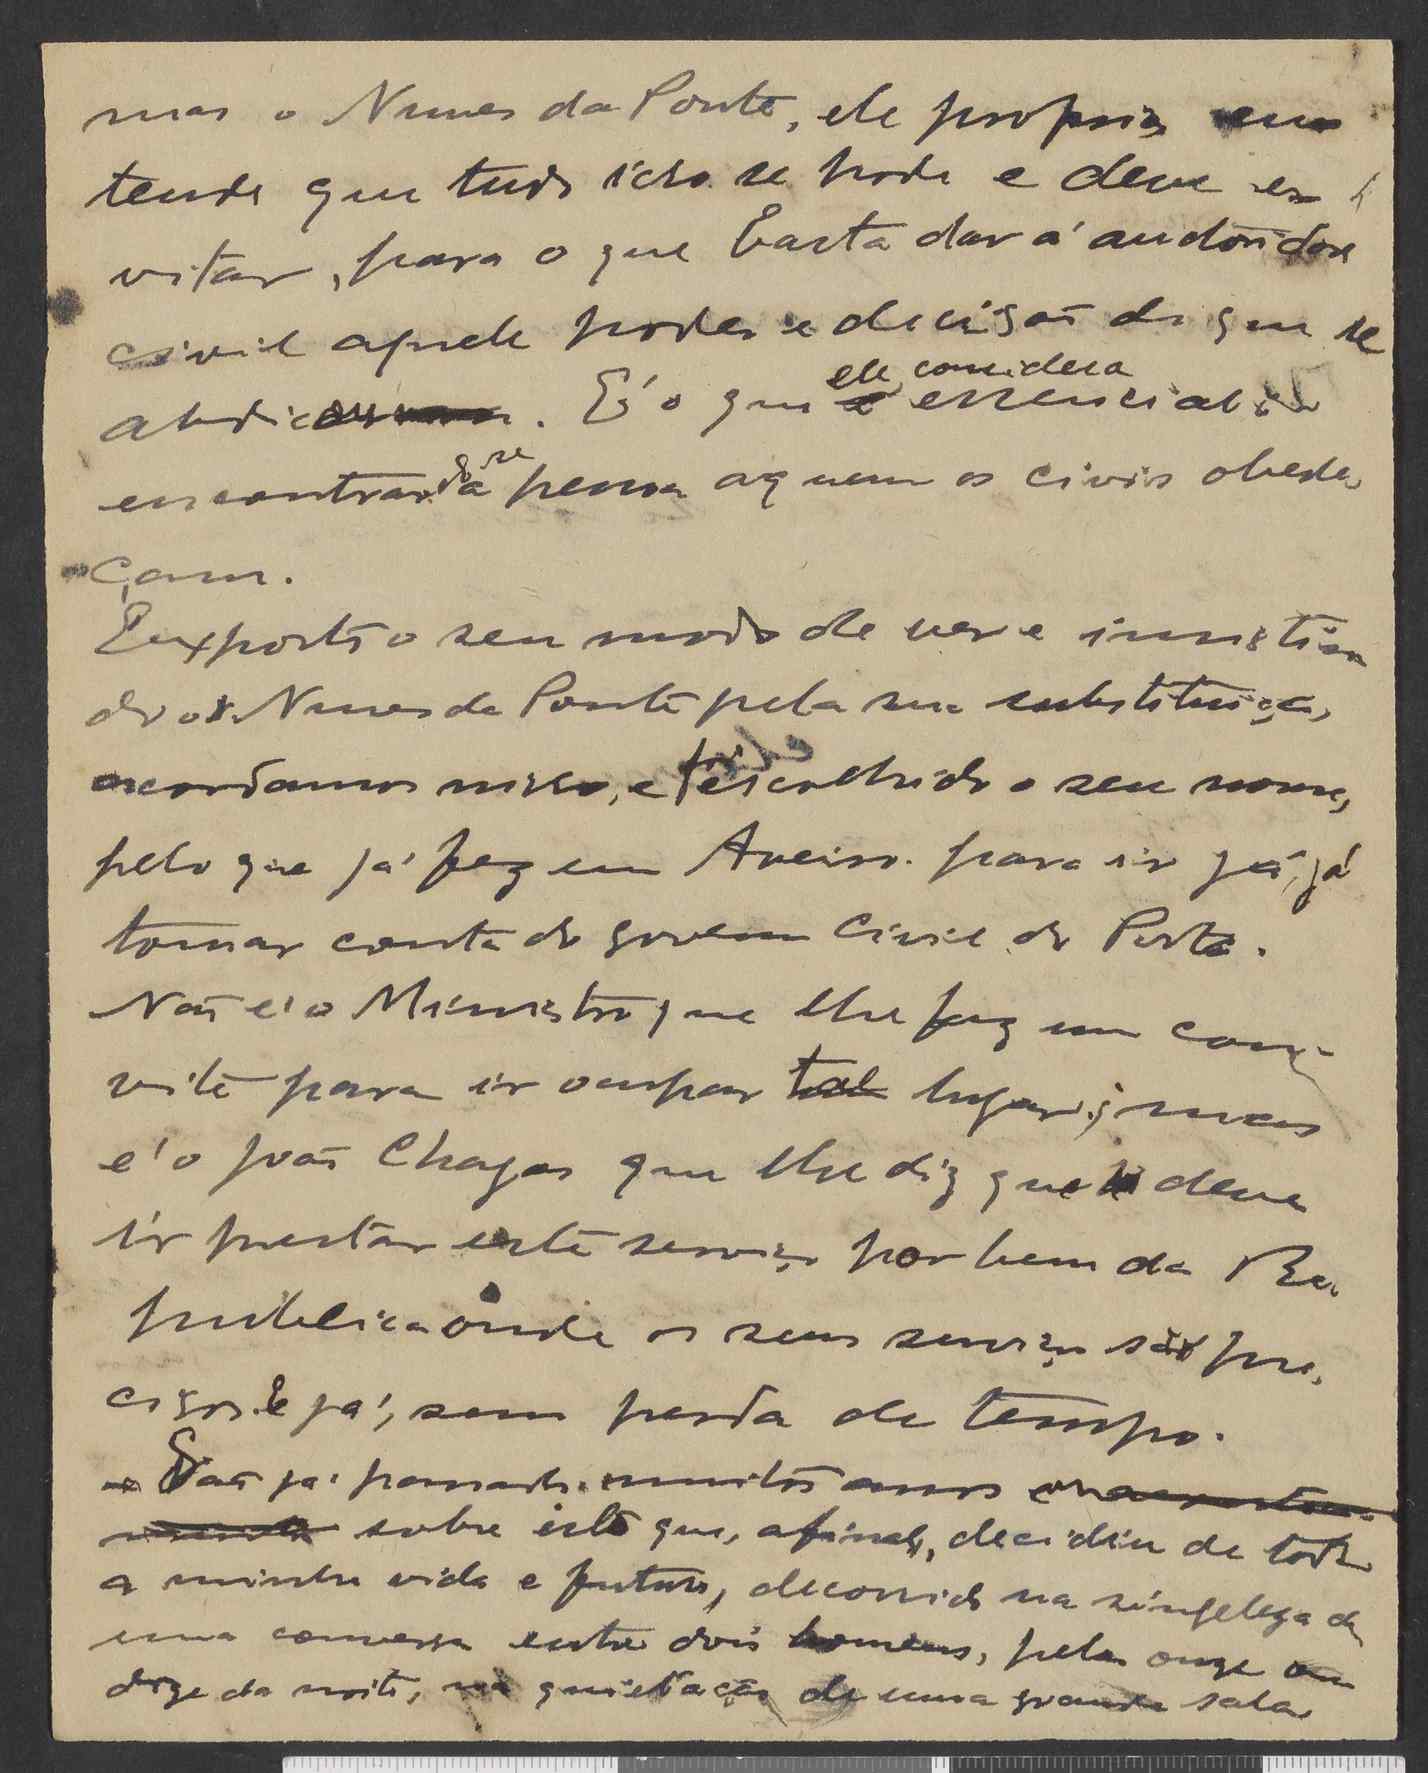 mas o Nunes da Ponte, ele proprio en
tende que tudo isso se pode e deve e
vitar, para o que basta dar á autoridade
civil aquele poder e decisão de que se
abdicou. E' o que ele considera essencial é
encontrar-se pessoa a quem os civis obede,
çam.
Exposto o seu modo de ver e insistin
do o Nunes da Ponte pela sua substituição,
acordamos nisso, e foi escolhido o seu nome,
pelo que já fez em Aveiro para ir já, já
tomar conta do governo Civil do Porto.
Não é o Ministro que lhe faz um con-
vite para ir ocupar tal lugar; mas
é o João Chagas que lhe diz que deve
ir prestar este serviço por bem da Re
publica onde os seus serviços são pre,
cisos. E já, sem perda de tempo.
São já passados muitos anos
sobre isto que, afinal, decidiu de toda
a minha vida e futuro, decorrido na singeleza de
uma conversa entre dois homens, pelas onze ou
doze da noite, na quietação de uma grande sala